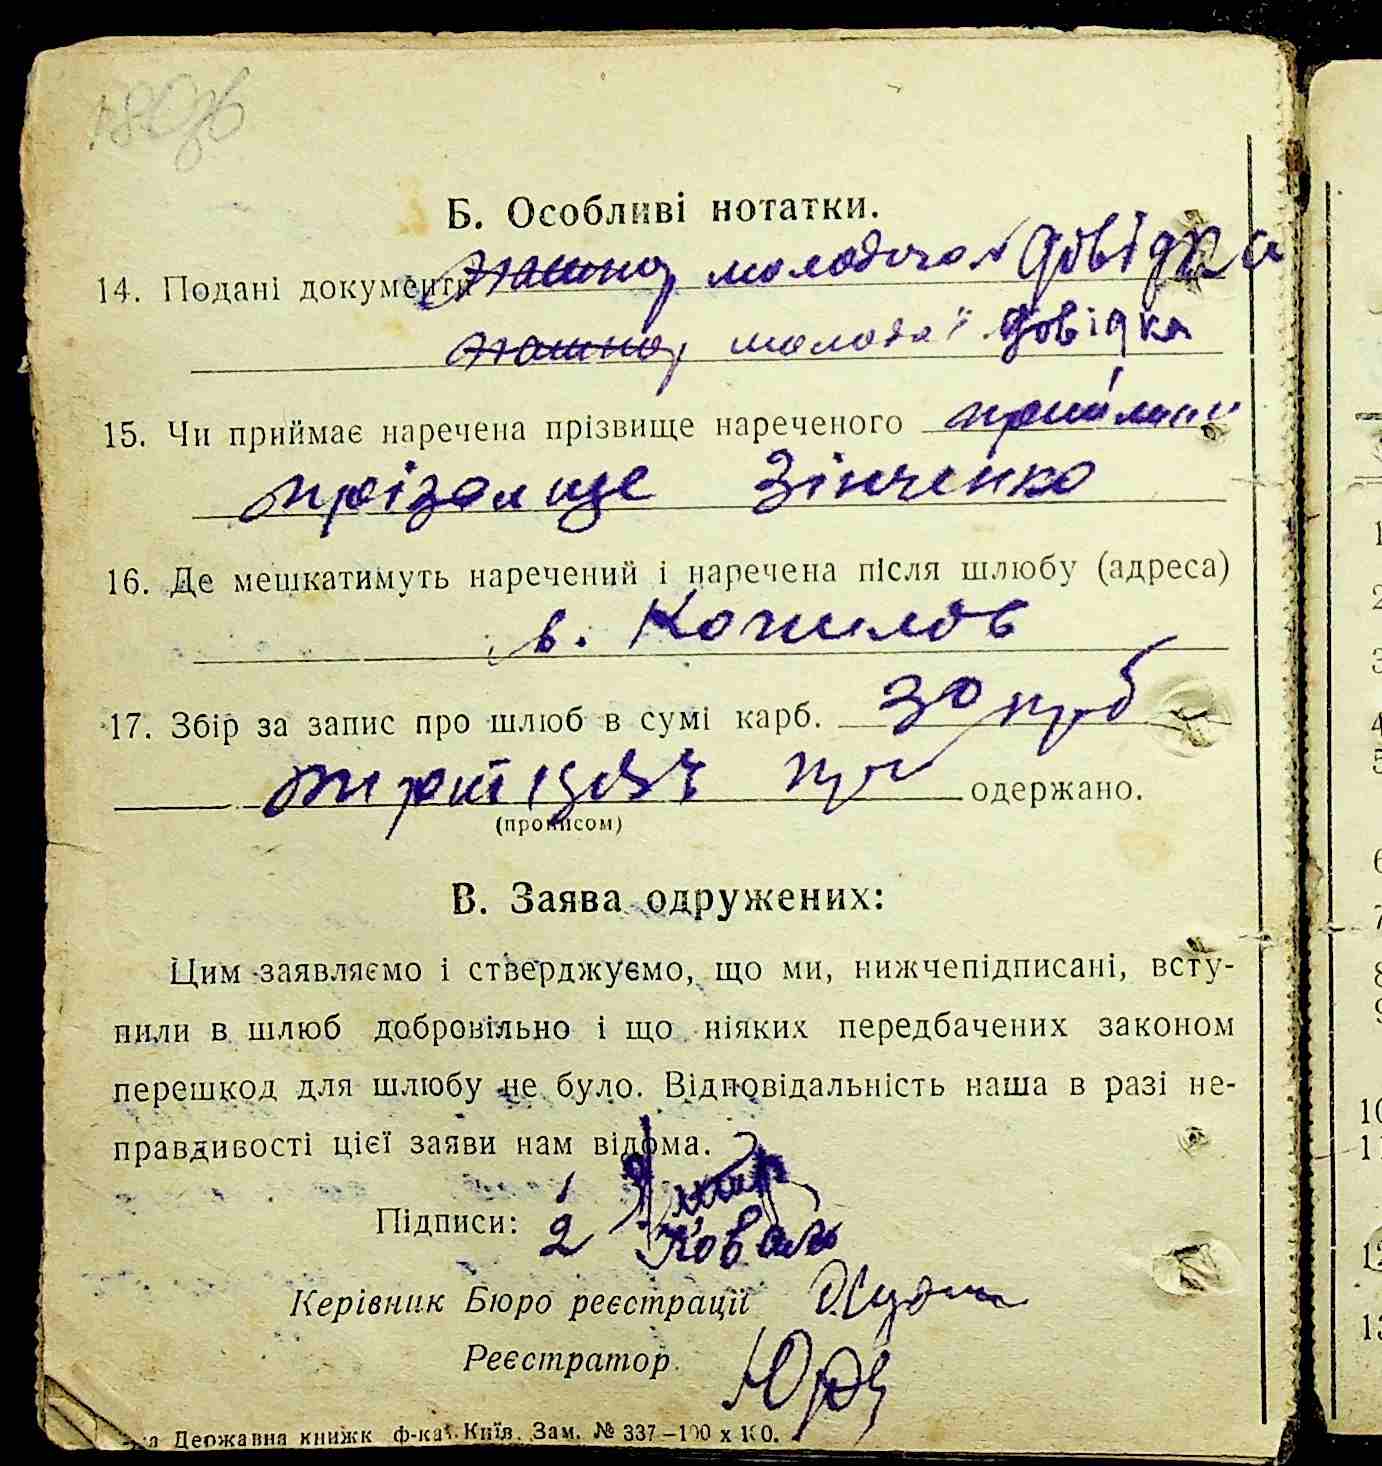 Б. Особливі нотатки.
14. Подані документи молодого довідка
молодої довідка
15. Чи приймає наречена прізвище нареченого приймає
прізвище Зінченко
16. Де мешкатимуть наречений і наречена після шлюбу (адреса)
в.
17. Збір за запис про шлюб в сумі карб. 30
одержано.
(прописом)
В. Заява одружених:
Цим заявляємо і стверджуємо, що ми, нижчепідписані, всту-
пили в шлюб добровільно і що ніяких передбачених законом
перешкод для шлюбу не було. Відповідальність наша в разі не-
правдивості цієї заяви нам відома.
Підписи: 1
2 Коваль
Керівник Бюро реєстрації
Реєстратор
Державна книжк ф-ка. Київ. Зам. № 337—100 х 100.